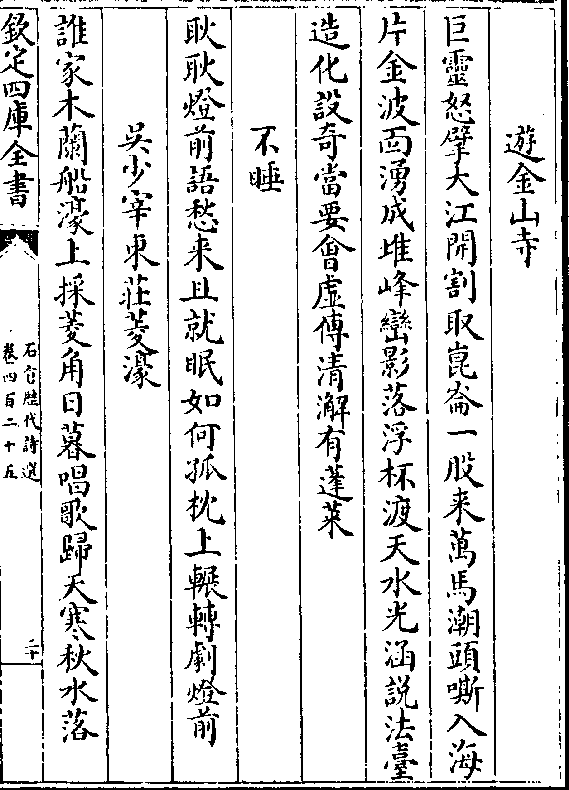 遊金山寺
巨靈怒擘大江開割取崑崙一股来萬馬潮頭嘶入海
片金波面湧成堆峰巒影落浮杯渡天水光涵説法臺
造化設奇當要㑹虛傳清澥有蓬萊
不睡
耿耿燈前語愁来且就眠如何孤枕上輾轉劇燈前
吳少宰東莊菱濠
誰家木蘭船濠上採菱角日暮唱歌歸天寒秋水落
欽定四庫全書
石倉歴代詩選
卷四百二十五
二十